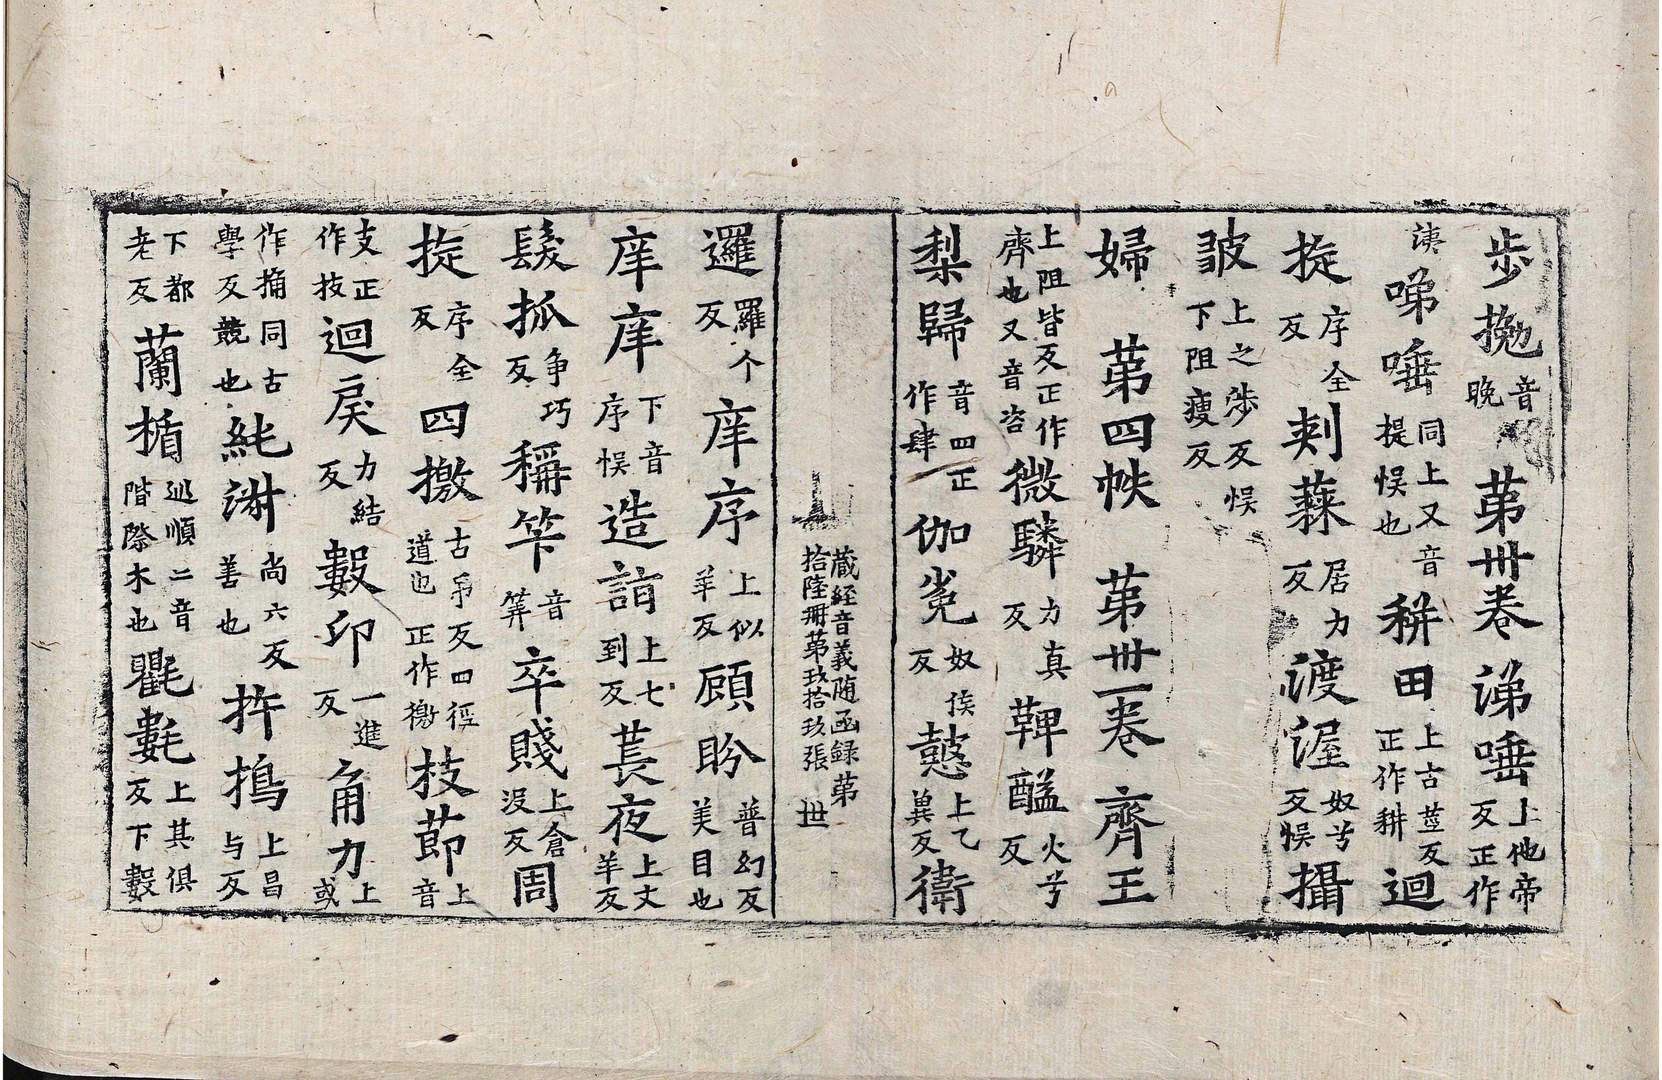 步挽音晚第卅卷涕唾上他帝反正作
洟啼唾同上又音提悞也耕田上古莖反正作耕迴
㨈序全反刾蕀居力反渡渥奴兮反悞攝
皺上之涉反悞下阻瘦反
婦第四帙第卅一卷齊王
上阻皆反正作齊也又音咨微驎力真反鞞醯火兮反
梨歸音四正作肆伽㝹奴侯反憠上乙冀反衛
藏経音義随函録第
拾陸冊第玖拾玖張世
邏羅个反庠序上似羊反顧盻普幻反美目也
庠庠下音序悞造詣上七到反萇夜上丈羊反
鬚抓爭巧反稱竿音筭卒賤上倉没反周
㨈序全反四撽古弔反四徑道也正作徼枝莭上音
支正作技迴戾力結反數印一進反角力上或
作捔同古學反競也純謝尚六反善也拃搗上昌与反
下都老反蘭楯巡順二音階際木也氍氀上其俱反下數